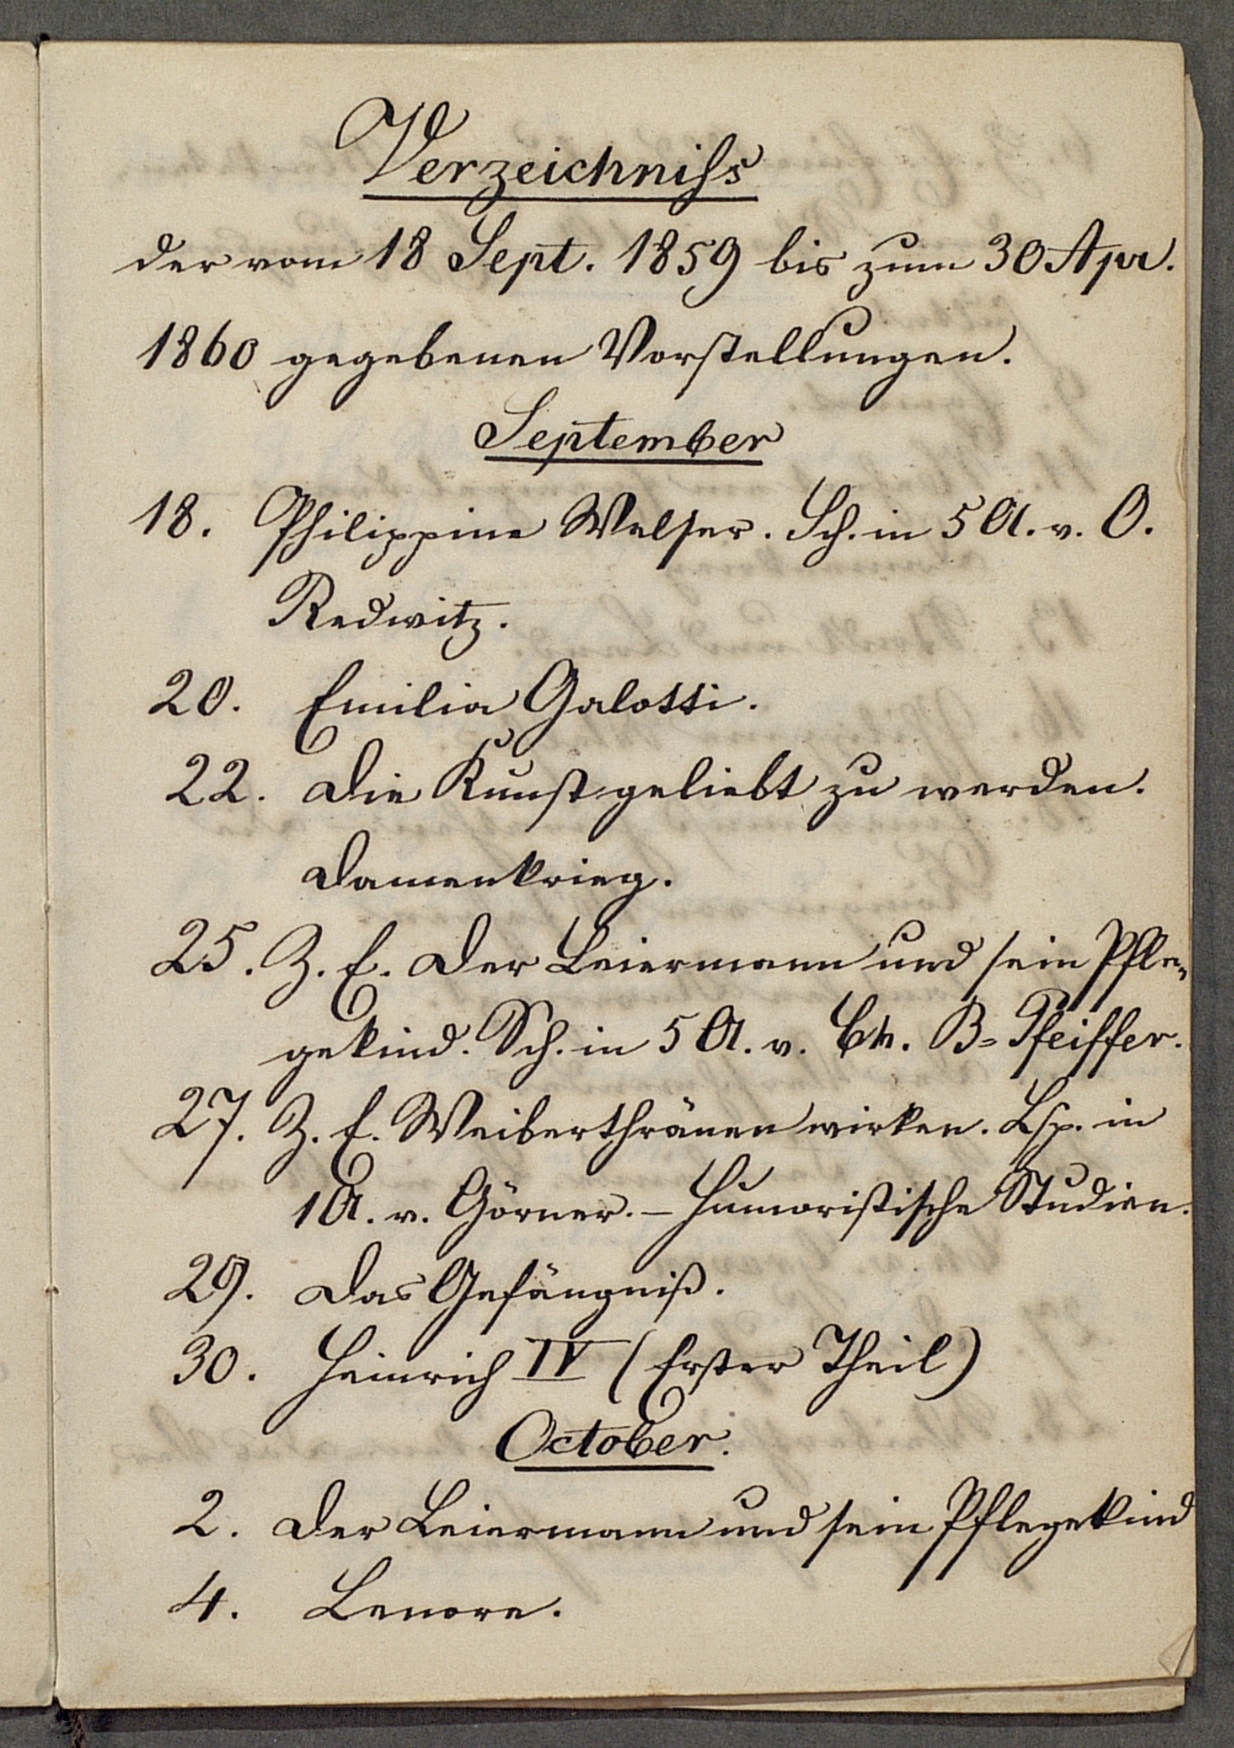 Verzeichniss
der vom 18 Sept. 1859 bis zum 30 Apr.
1860 gegebenen Vorstellungen.
September
18. Philippine Welser. Sch. in 5 A. v. O.
Redwitz.
20. Emilia Galotti.
22. Die Kunst geliebt zu werden.
Damenkrieg.
25. Z. E. Der Leiermann und sein Pfle=
gekind. Sch. in 5 A. v. Ch. B=Pfeiffer.
27. Z. E. Weiberthränen wirken. Lsp. in
1 A. v. Görner. – Humoristische Studien.
29. Das Gefängniß.
30. Heinrich IV (Erster Theil)
October.
2. Der Leiermann und sein Pflegekind
4. Lenore.